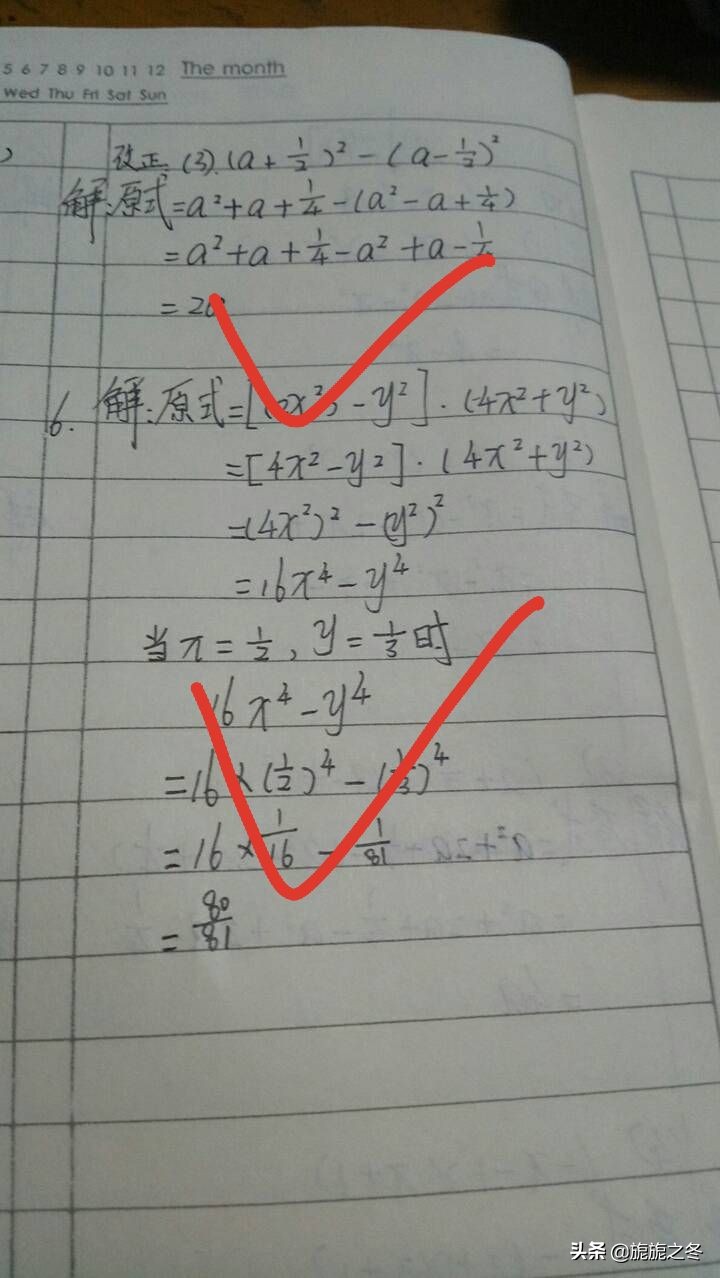 5 6 7 8 9 10 11 12 The month
Wed Thu Fri Sat Sun
改正 (3). (a + 1/2)² - (a - 1/2)²
解:原式 = a² + a + 1/4 - (a² - a + 1/4)
= a² + a + 1/4 - a² + a - 1/4
= 2a
6. 解:原式 = [(2x)² - y²] · (4x² + y²)
= [4x² - y²] · (4x² + y²)
= (4x²)² - (y²)²
= 16x⁴ - y⁴
当 x = 1/2, y = 1/3 时
16x⁴ - y⁴
= 16 × (1/2)⁴ - (1/3)⁴
= 16 × 1/16 - 1/81
= 80/81
头条 @旎旎之冬